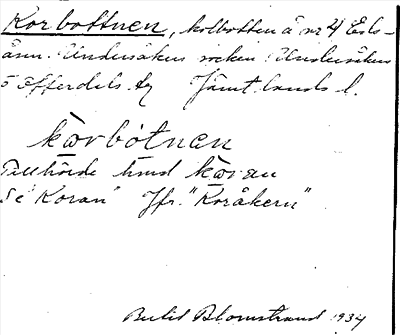 Korbottnen, kolbotten å nr 4 Eds-
åsen. Undersåkers socken. Undersåkers
o Offerdals tg Jämtlands l.
kɷrbòtnen
Tillhörde hind kɷran
Se "Koran" Jfr. "Koråkern"
Blomstrand 1934